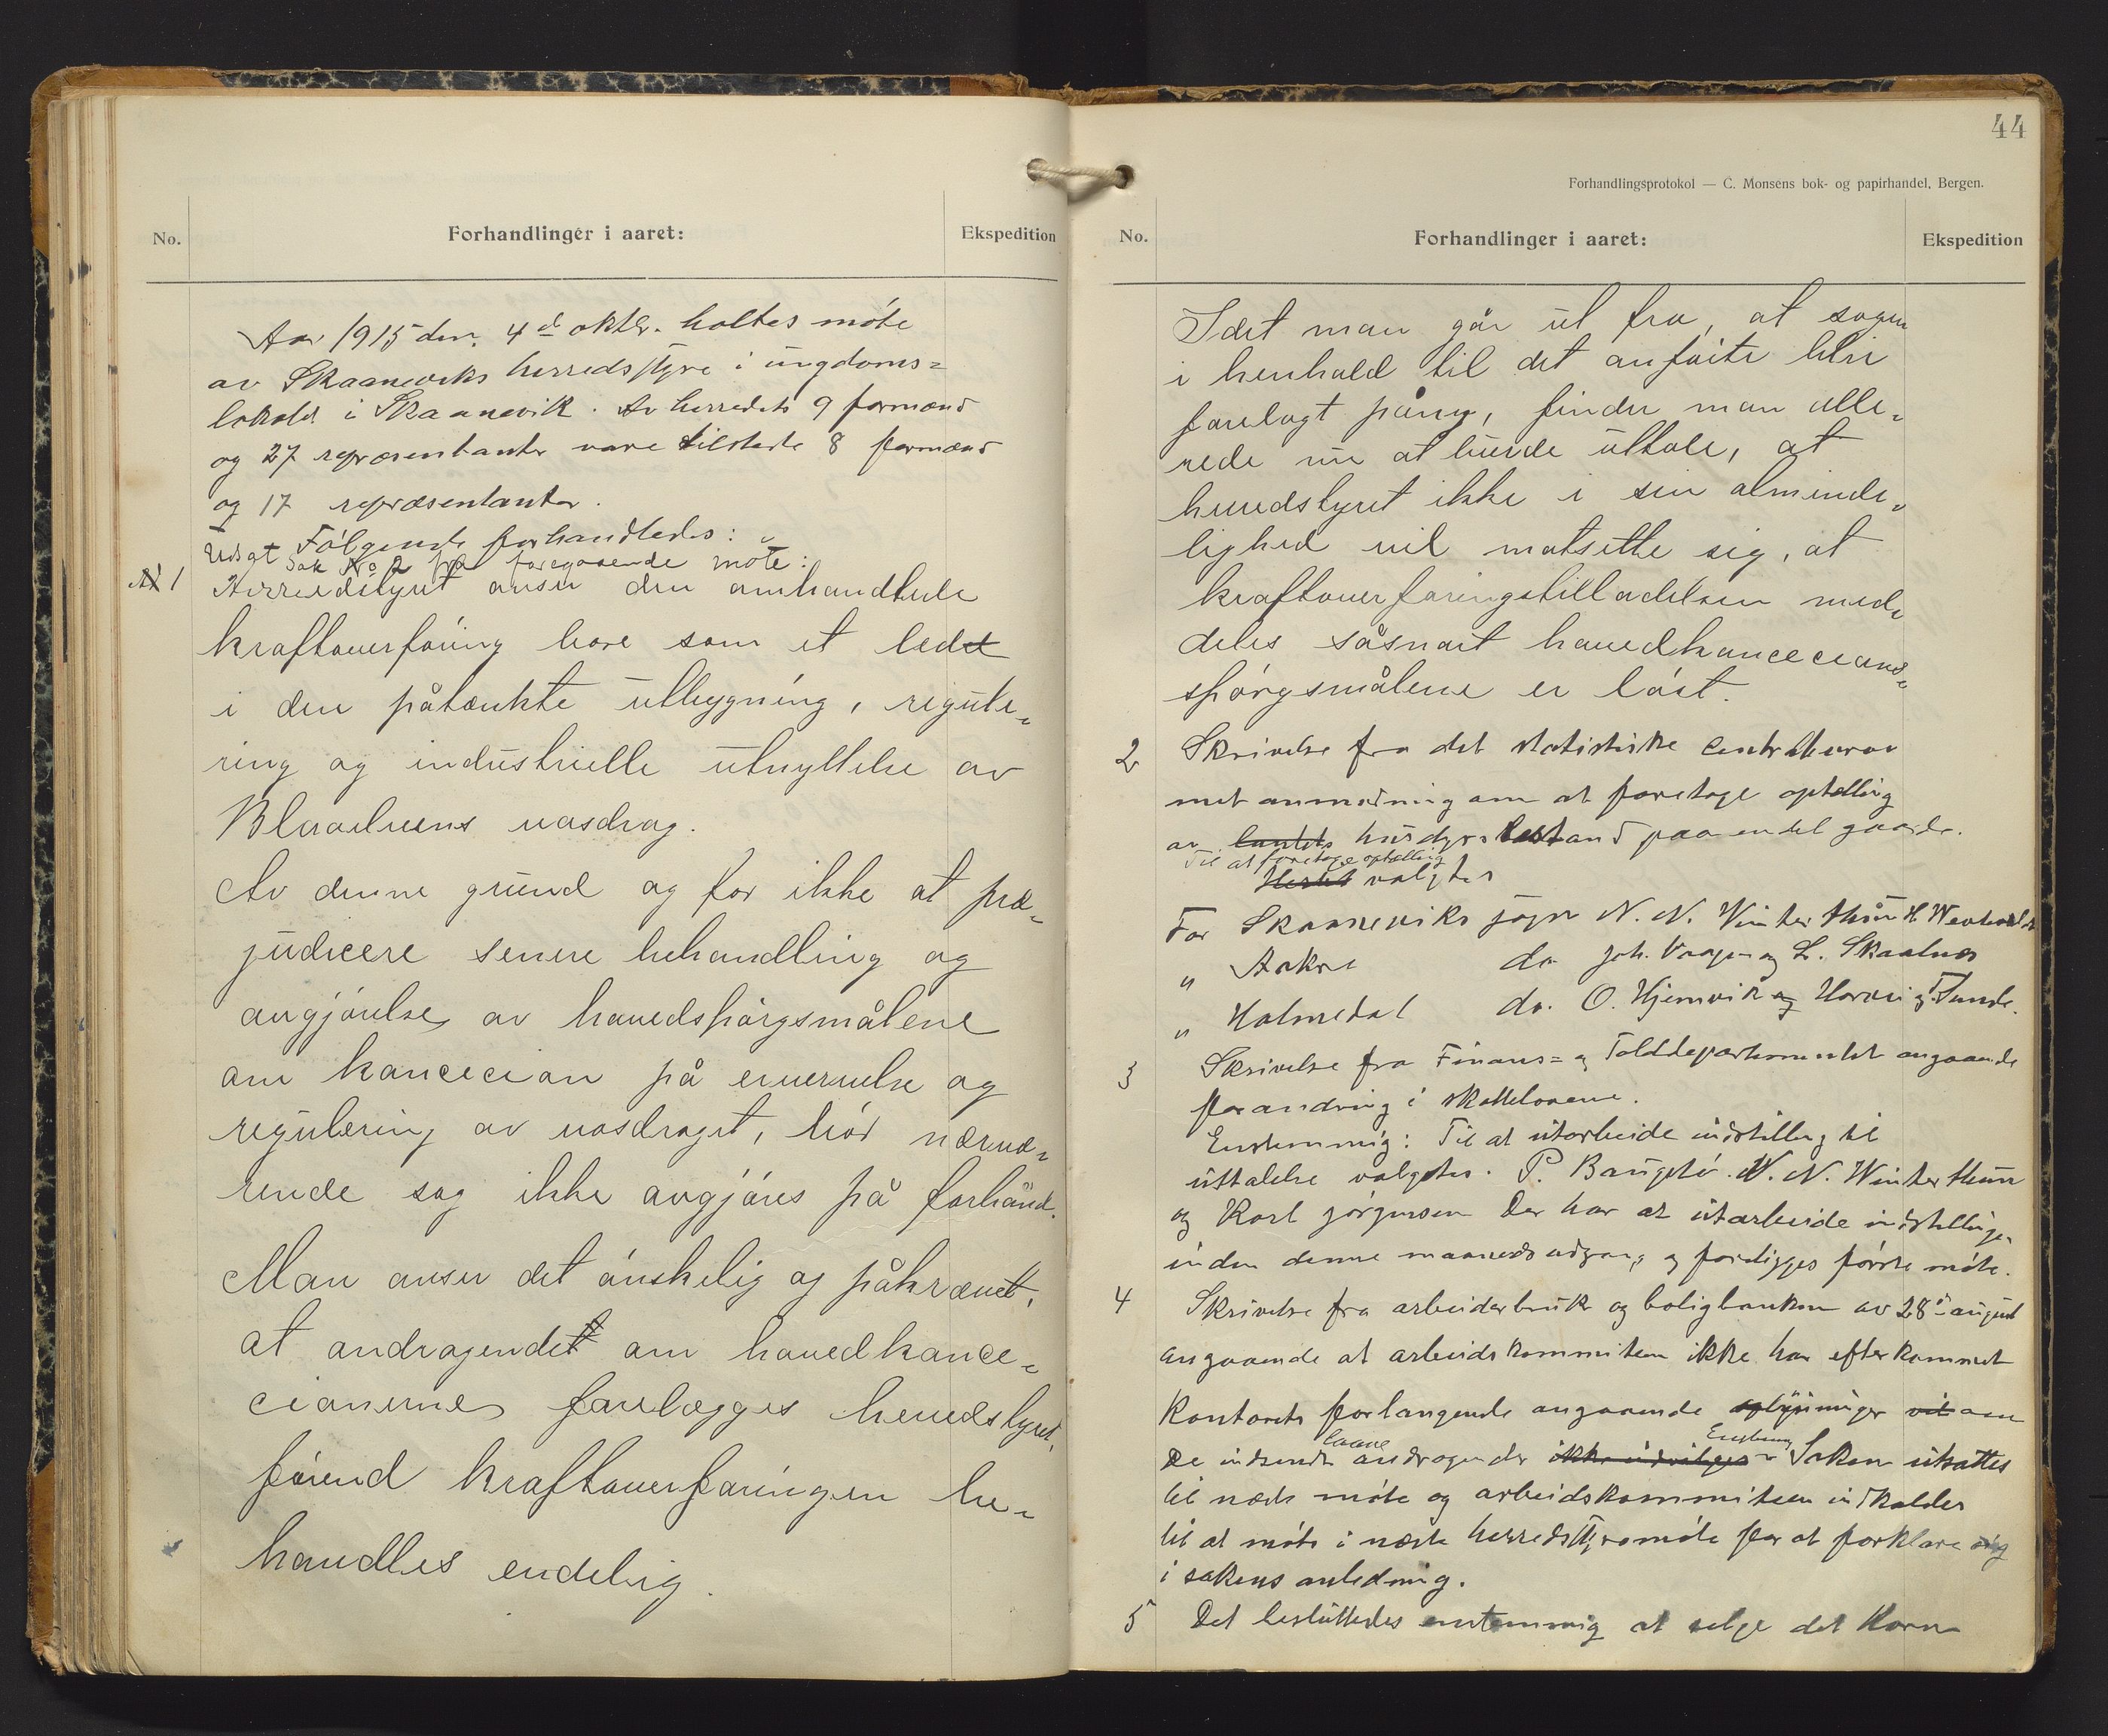 No.
Forhandlinger i aaret:
Ekspedition
Aar 1915 den. 4de oktbr. holtes møte
av Skaaneviks herredsstyre i ungdoms=
lokalet i Skaanevik. Av herredets 9 formænd
og 27 repræsentanter vare tilstede 8 formænd
og 17 repræsentanter.
Følgende forhandledes:
Utsgt Sak No 2 fra foregaaende møte:
No 1 Herredstyret anser den omhandlede
kraftoverføring bare som et ledet
i den påtænkte utbygning, regule-
ring og industrielle utnyttelse av
Blaaelvens vasdrag.
Av denne grund og for ikke at præ-
judicere senere behandling og
avgjørelse av hovedspørgsmålene
om koncecion på erververlse og
regulering av vasdraget, bør nærvæ-
rende sag ikke avgjøres på forhånd.
Man anser det ønskelig og påkrævet,
at andragendet om hovedkonce-
cionerne forelægges herredstyret,
førend kraftoverføringen be-
handles endelig.
44
Forhandlingsprotokol — C. Monsens bok- og papirhandel, Bergen.
No.
Forhandlinger i aaret:
Ekspedition
Idet man går ut fra, at sagen
i henhold til det anførte blir
forelagt påny, finder man alle-
rede nu at burde uttale, at
herredstyret ikke i sin alminde-
lighed vil motsette sig, at
kraftoverføringstilladelsen med-
deles såsnart hovedkoncecions-
spørgsmålene er løst.
2 Skrivelse fra det statistiske Centralbyraa
met anmodning om at foretage optælling
av landets husdyrsbestand paa en del gaarde.
Til at foretage optælling
Hertil valgtes
For Skaaneviks sogn N. N. Winter thun H. Wevle
" Aakre do Joh. Vaage og L. Skaalnes
" Holmedal do. O. Hjemvik og Tunde.
3 Skrivelse fra Finans= og Tolddepartementet angaaende
forandring i skattelovene.
Enstemmig: Til at utarbeide indstilling til
uttalelse valgtes. P. Baugstø. N. N. Winter thun
og Karl Jørgensen Der har at utarbeide indstillingen
inden denne maaneds utgang, og foreligges første møte.
4 Skrivelse fra arbeiderbruk og boligbanken av 28de august
angaaende at arbeidskommiteen ikke har efterkommet
Kontorets forlangende angaaende oplysninger vit om
De indsendte laane andragender ikke indvilges Enstemmig Saken utsattes
til næste møte og arbeidskommiteen indkaldes
til at møte i næste herredsstyremøte for at forklare sig
i sakens anledning.
5 Det besluttedes enstemmig at selge det Korn